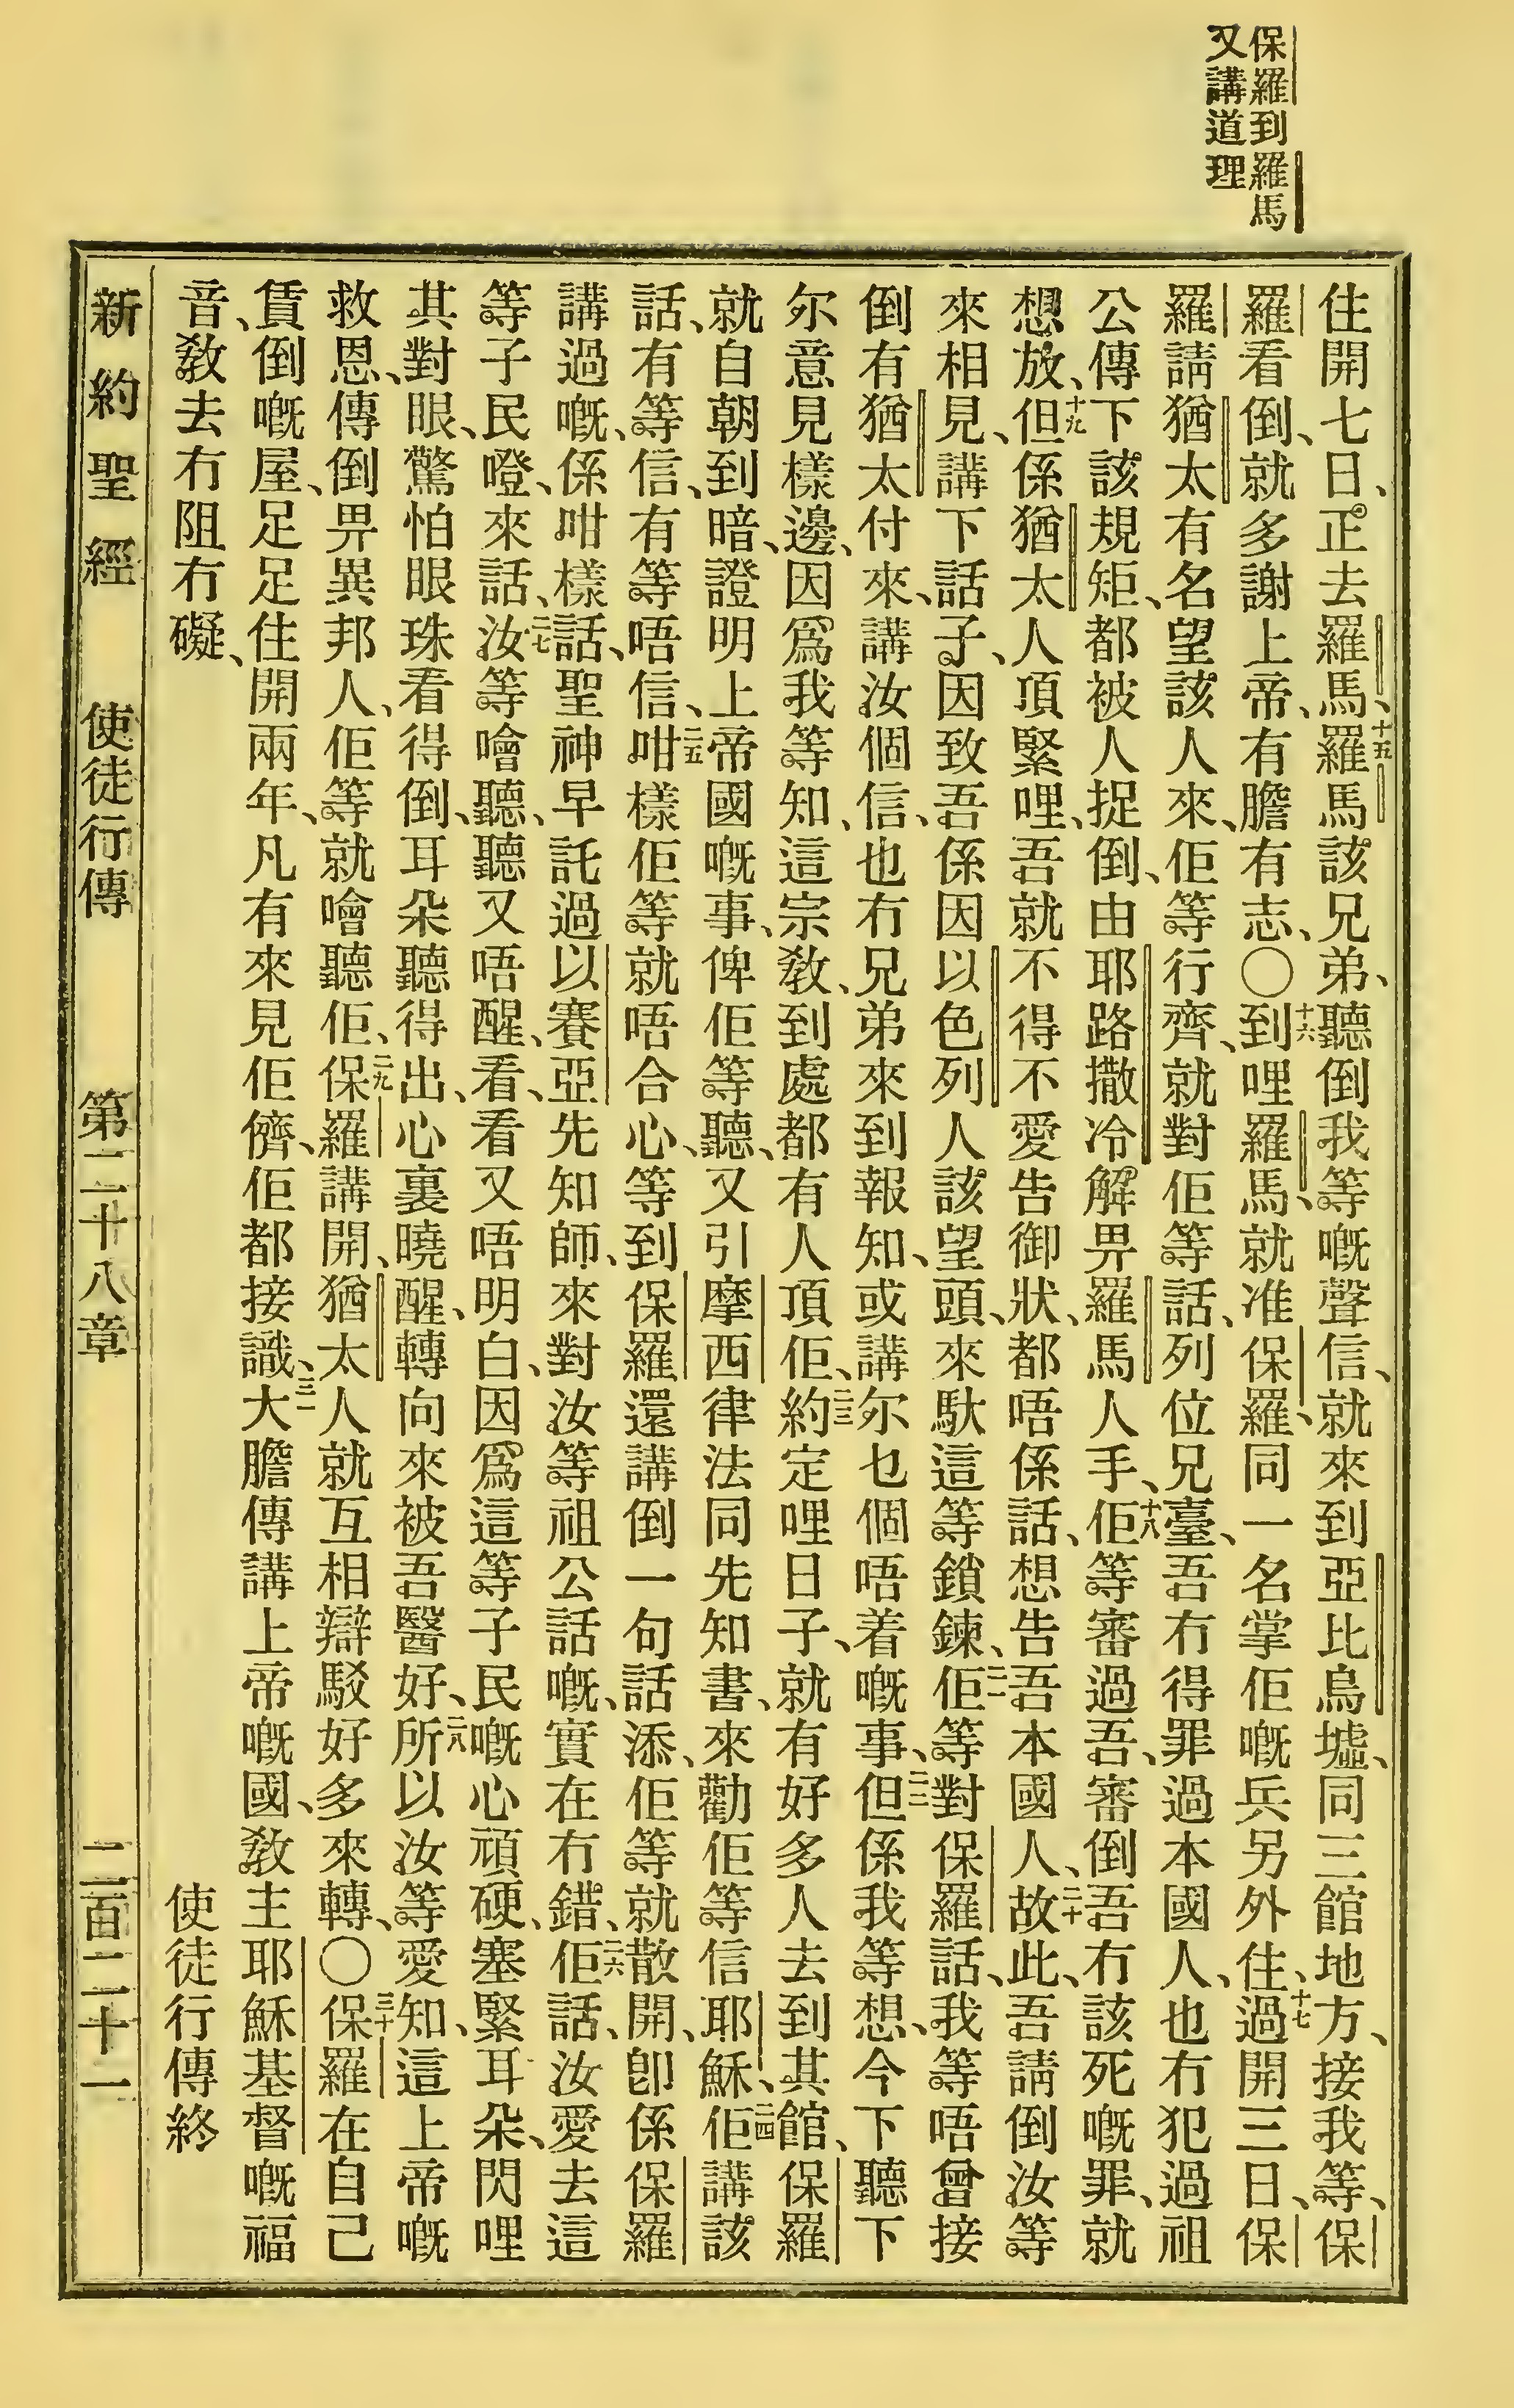 保羅到羅馬
又講道理
住開七日、正去羅馬、十五羅馬該兄弟、聽倒我等嘅聲信、就來到亞比烏墟、同三館地方、接我等、保
羅看倒、就多謝上帝、有膽有志、〇十六到哩羅馬、就准保羅、同一名掌佢嘅兵另外住、十七過開三日、保
羅請猶太有名望該人來、佢等行齊、就對佢等話、列位兄臺、吾冇得罪過本國人、也冇犯過祖
公傳下該規矩、都被人捉倒、由耶路撒冷解畀羅馬人手、十八佢等審過吾、審倒吾冇該死嘅罪、就
想放、十九但係猶太人頂緊哩、吾就不得不愛告御狀、都唔係話、想告吾本國人、二十故此、吾請倒汝等
來相見、講下話子、因致吾係因以色列人該望頭、來馱這等鎖鍊、二一佢等對保羅話、我等唔曾接
倒有猶太付來、講汝個信、也冇兄弟來到報知、或講尔乜個唔着嘅事、二二但係我等想、今下聽下
尔意見樣邊、因爲我等知、這宗教、到處都有人頂佢、二三約定哩日子、就有好多人去到其館、保羅
就自朝到暗、證明上帝國嘅事、俾佢等聽、又引摩西律法同先知書、來勸佢等信耶穌、二四佢講該
話、有等信、有等唔信、二五咁樣佢等就唔合心、等到保羅還講倒一句話添、佢等就散開、卽係保羅
講過嘅、係咁樣話、聖神早託過以賽亞先知師、來對汝等祖公話嘅、實在冇錯、二六佢話、汝愛去這
等子民噔、來話、二七汝等噲聽、聽又唔醒、看、看又唔明白、因爲這等子民嘅心頑硬、塞緊耳朵、閃哩
其對眼、驚怕眼珠看得倒、耳朵聽得出、心裏曉醒、轉向來被吾醫好、二八所以汝等愛知、這上帝嘅
救恩、傳倒畀異邦人、佢等就噲聽佢、二九保羅講開、猶太人就互相辯駁好多來轉、〇三十保羅在自己
賃倒嘅屋、足足住開兩年、凡有來見佢儕、佢都接識、三一大膽傳講上帝嘅國、教主耶穌基督嘅福
音、教去冇阻冇礙、
使徒行傳終
新約聖經 使徒行傳 第二十八章 二百二十一